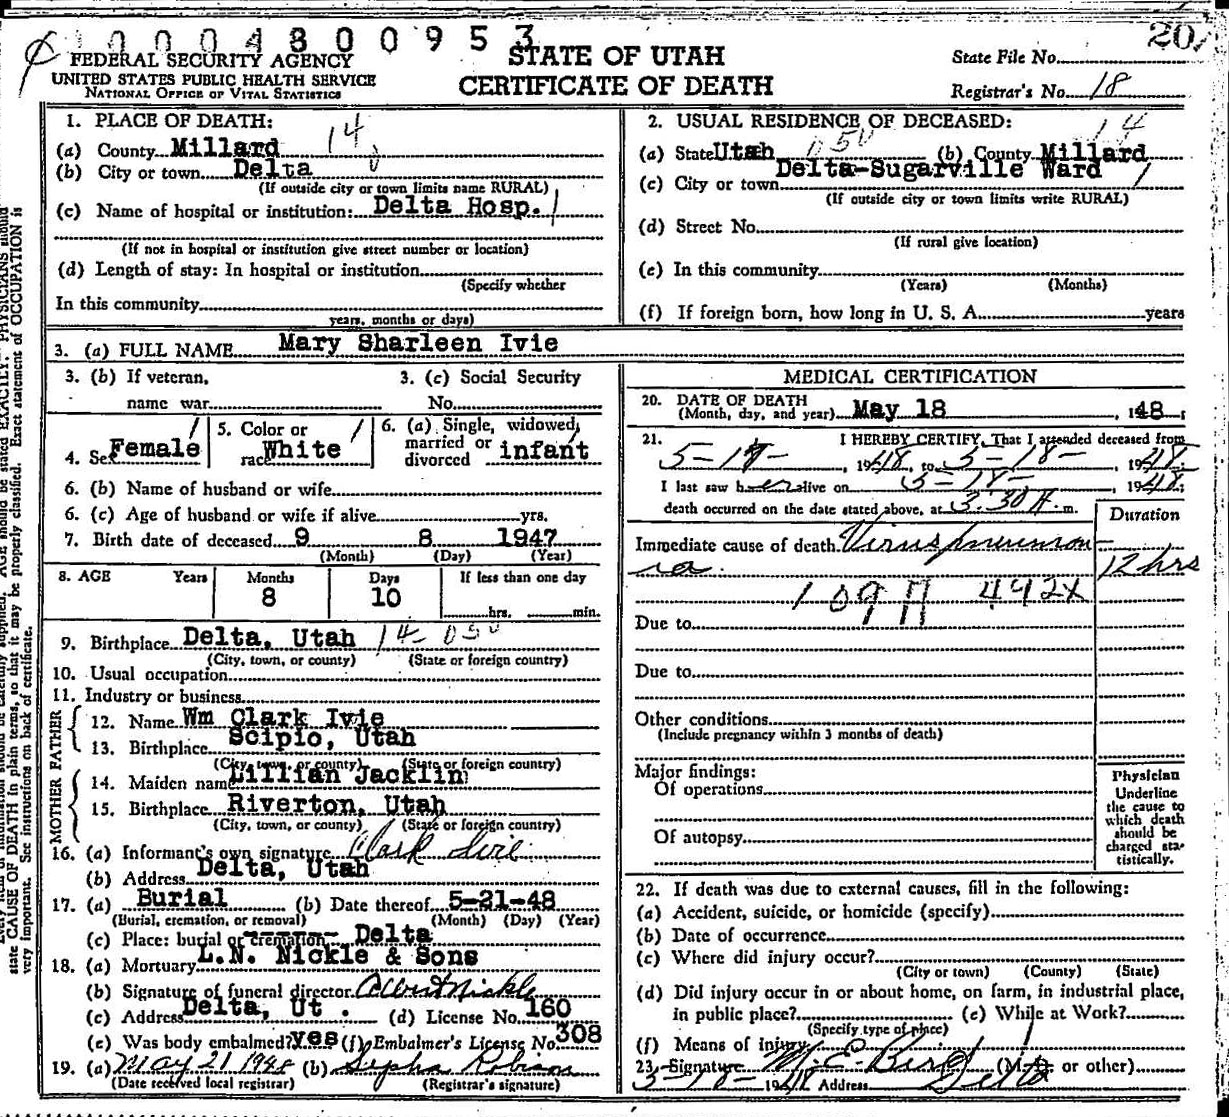 10004800953
20
FEDERAL SECURITY AGENCY
UNITED STATES PUBLIC HEALTH SERVICE
NATIONAL OFFICE OF VITAL STATISTICS
STATE OF UTAH
CERTIFICATE OF DEATH
State File No.
Registrar's No. 18
1. PLACE OF DEATH:
14
(a) County Millard
(b) City or town Delta
(If outside city or town limits name RURAL)
(c) Name of hospital or institution: Delta Hosp.
(If not in hospital or institution give street number or location)
(d) Length of stay: In hospital or institution
(Specify whether
In this community
years, months or days)
2. USUAL RESIDENCE OF DECEASED:
050 14
(a) State Utah (b) County Millard
(c) City or town Delta-Sugarville Ward
(If outside city or town limits write RURAL)
(d) Street No.
(If rural give location)
(e) In this community
(Years) (Months)
(f) If foreign born, how long in U. S. A. years
3. (a) FULL NAME Mary Sharleen Ivie
3. (b) If veteran, name war
3. (c) Social Security No.
4. Sex Female
5. Color or race White
6. (a) Single, widowed, married or divorced infant
6. (b) Name of husband or wife
6. (c) Age of husband or wife if alive yrs.
7. Birth date of deceased 9 8 1947
(Month) (Day) (Year)
8. AGE Years Months Days If less than one day
8 10 hrs. min.
9. Birthplace Delta, Utah 14-050
(City, town, or county) (State or foreign country)
10. Usual occupation
11. Industry or business
FATHER
12. Name Wm Clark Ivie
13. Birthplace Scipio, Utah
(City, town, or county) (State or foreign country)
MOTHER
14. Maiden name Lillian Jacklin
15. Birthplace Riverton, Utah
(City, town, or county) (State or foreign country)
16. (a) Informant's own signature Clark Ivie
(b) Address Delta, Utah
17. (a) Burial (b) Date thereof 5-21-48
(Burial, cremation, or removal) (Month) (Day) (Year)
(c) Place: burial or cremation Delta
18. (a) Mortuary L.N. Nickle & Sons
(b) Signature of funeral director Albert Nickle
(c) Address Delta, Ut. (d) License No. 160
(e) Was body embalmed? yes (f) Embalmer's License No. 308
19. (a) May 21 1948 (b)
(Date received local registrar) (Registrar's signature)
MEDICAL CERTIFICATION
20. DATE OF DEATH
(Month, day, and year) May 18, 1948;
21. I HEREBY CERTIFY, That I attended deceased from
5-17-, 1948, to 5-18-, 1948.
I last saw her alive on 5-18-, 1948;
death occurred on the date stated above, at 3:30 A. m.
Duration
Immediate cause of death Virus pneumon-
ia
12 hrs
109A 492X
Due to
Due to
Other conditions
(Include pregnancy within 3 months of death)
Major findings:
Of operations
Of autopsy
Physician
Underline
the cause to
which death
should be
charged sta-
tistically.
22. If death was due to external causes, fill in the following:
(a) Accident, suicide, or homicide (specify)
(b) Date of occurrence
(c) Where did injury occur?
(City or town) (County) (State)
(d) Did injury occur in or about home, on farm, in industrial place,
in public place? (e) While at Work?
(Specify type of place)
(f) Means of injury
23. Signature M. E. Bird (M.D. or other)
5-18-1948 Address Delta
state CAUSE OF DEATH in plain terms, so that it may be properly classified. Exact statement of OCCUPATION is
very important. See instructions on back of certificate.